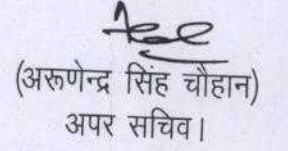 (अरूणेन्द्र सिंह चौहान)
अपर सचिव।